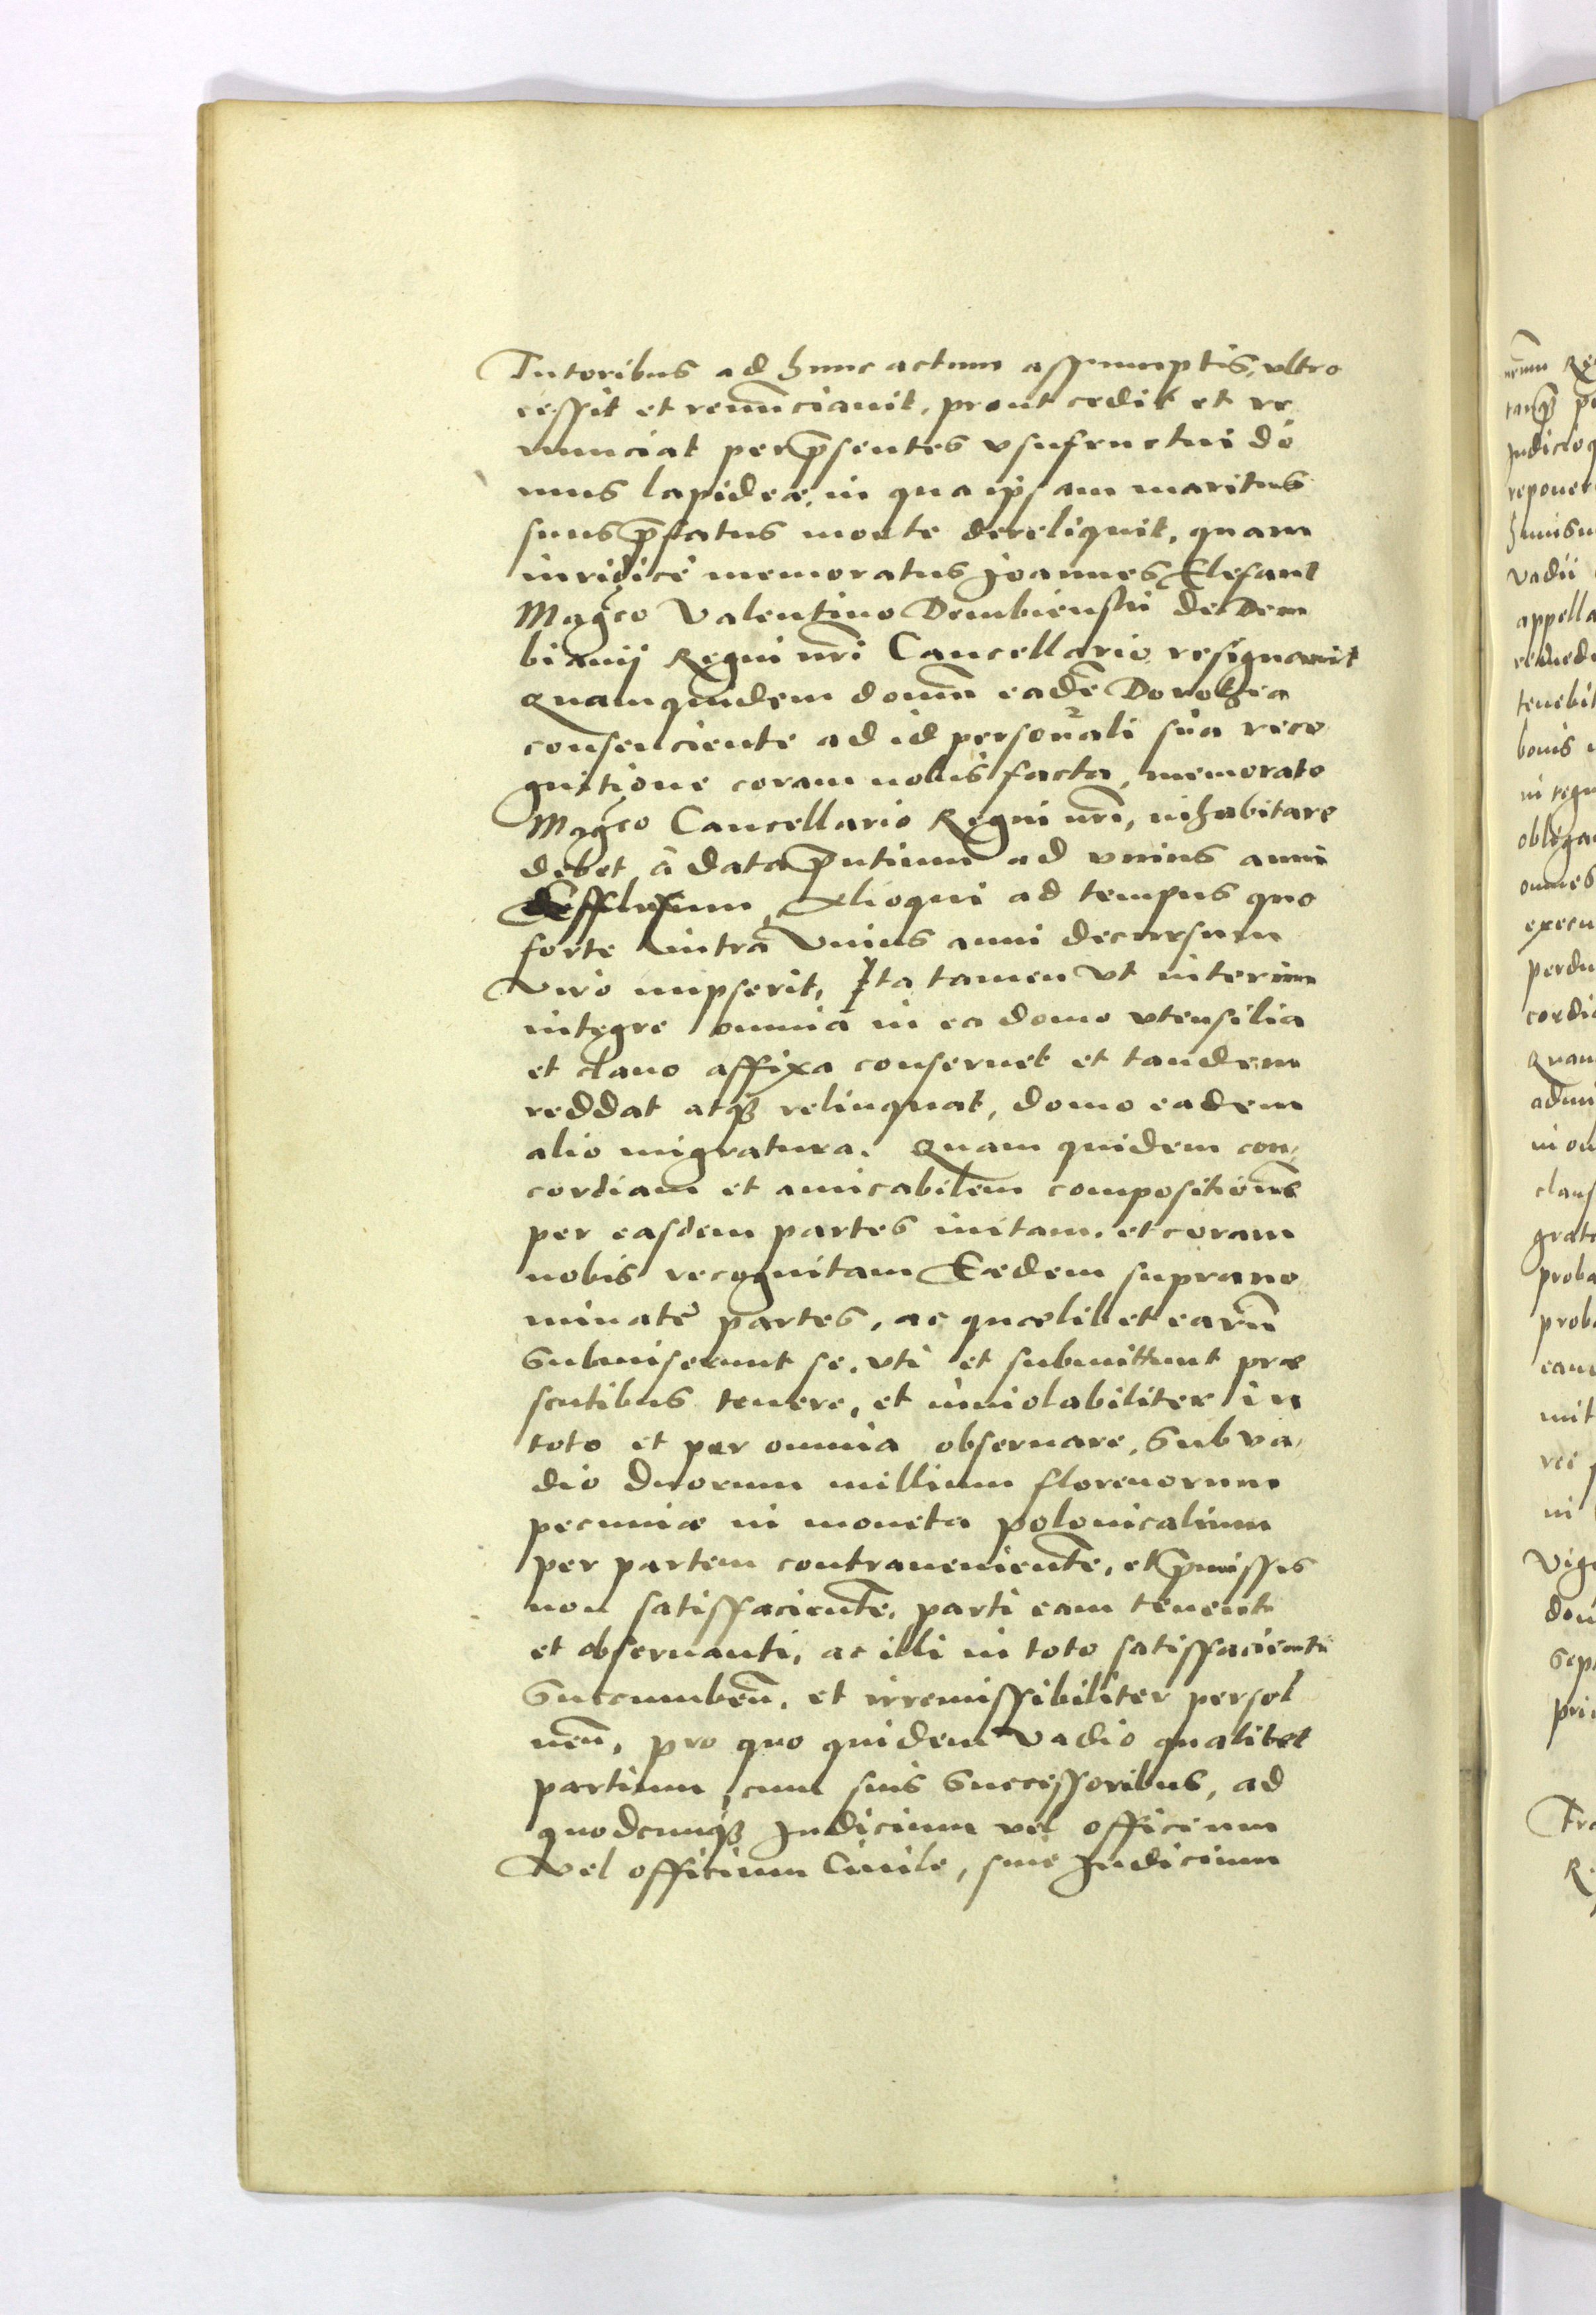 Tutoribus ad hunc actum assumptis, vltro
cessit et renu͂nciauit, prout cedit et re
nunciat per p͂sentes vsufructui do
mus lapideæ, in qua ipsam maritus
suus p͂fatus morte dereliquit, quam
iuridice memoratus Joannes Elefant
Mag͂co Valentino Dembienski de Dem
bianij Regni nr͂i Cancellario resignauit
Quamquidem domu͂ eade͂ Dorothea
consenciente ad id personali sua reco
gnitione coram nobis facta, memorato
Mag͂co Cancellario Regni nr͂i, inhabitare
debet à data p͂ntium ad vnius anni
Effluxum, Alioqui ad tempus quo
forte intra vnius anni decursum
Viro nupserit, Ita tamen vt interim
integre omnia in ea domo vtensilia
et clauo affixa conseruet et tandem
reddat atq₃ relinquat, domo eadem
alio migratura. Quam quidem con,
cordiam et amicabilem compositione͂
per easdem partes initam, et coram
nobis recognitam Eædem suprano
minate partes, ac quælibet earu͂
Submiserunt se, vti et submittunt præ
sentibus tenere, et inuiolabiliter in
toto et per omnia obseruare, sub va,
dio duorum millium florenorum
pecuniæ in moneta polonicalium
per partem contraueniente͂, et p͂missis
non satisfaciente͂, parti eam tenenti
et obseruanti, ac illi in toto satisfacienti
Succumben͂, et irremissibiliter persol
uen͂, pro quo quidem vadio qualibet
partium, cum suis Successoribus, ad
quodcunq₃ Judicium vel officium
Vel officium Ciuile, siue Judicium